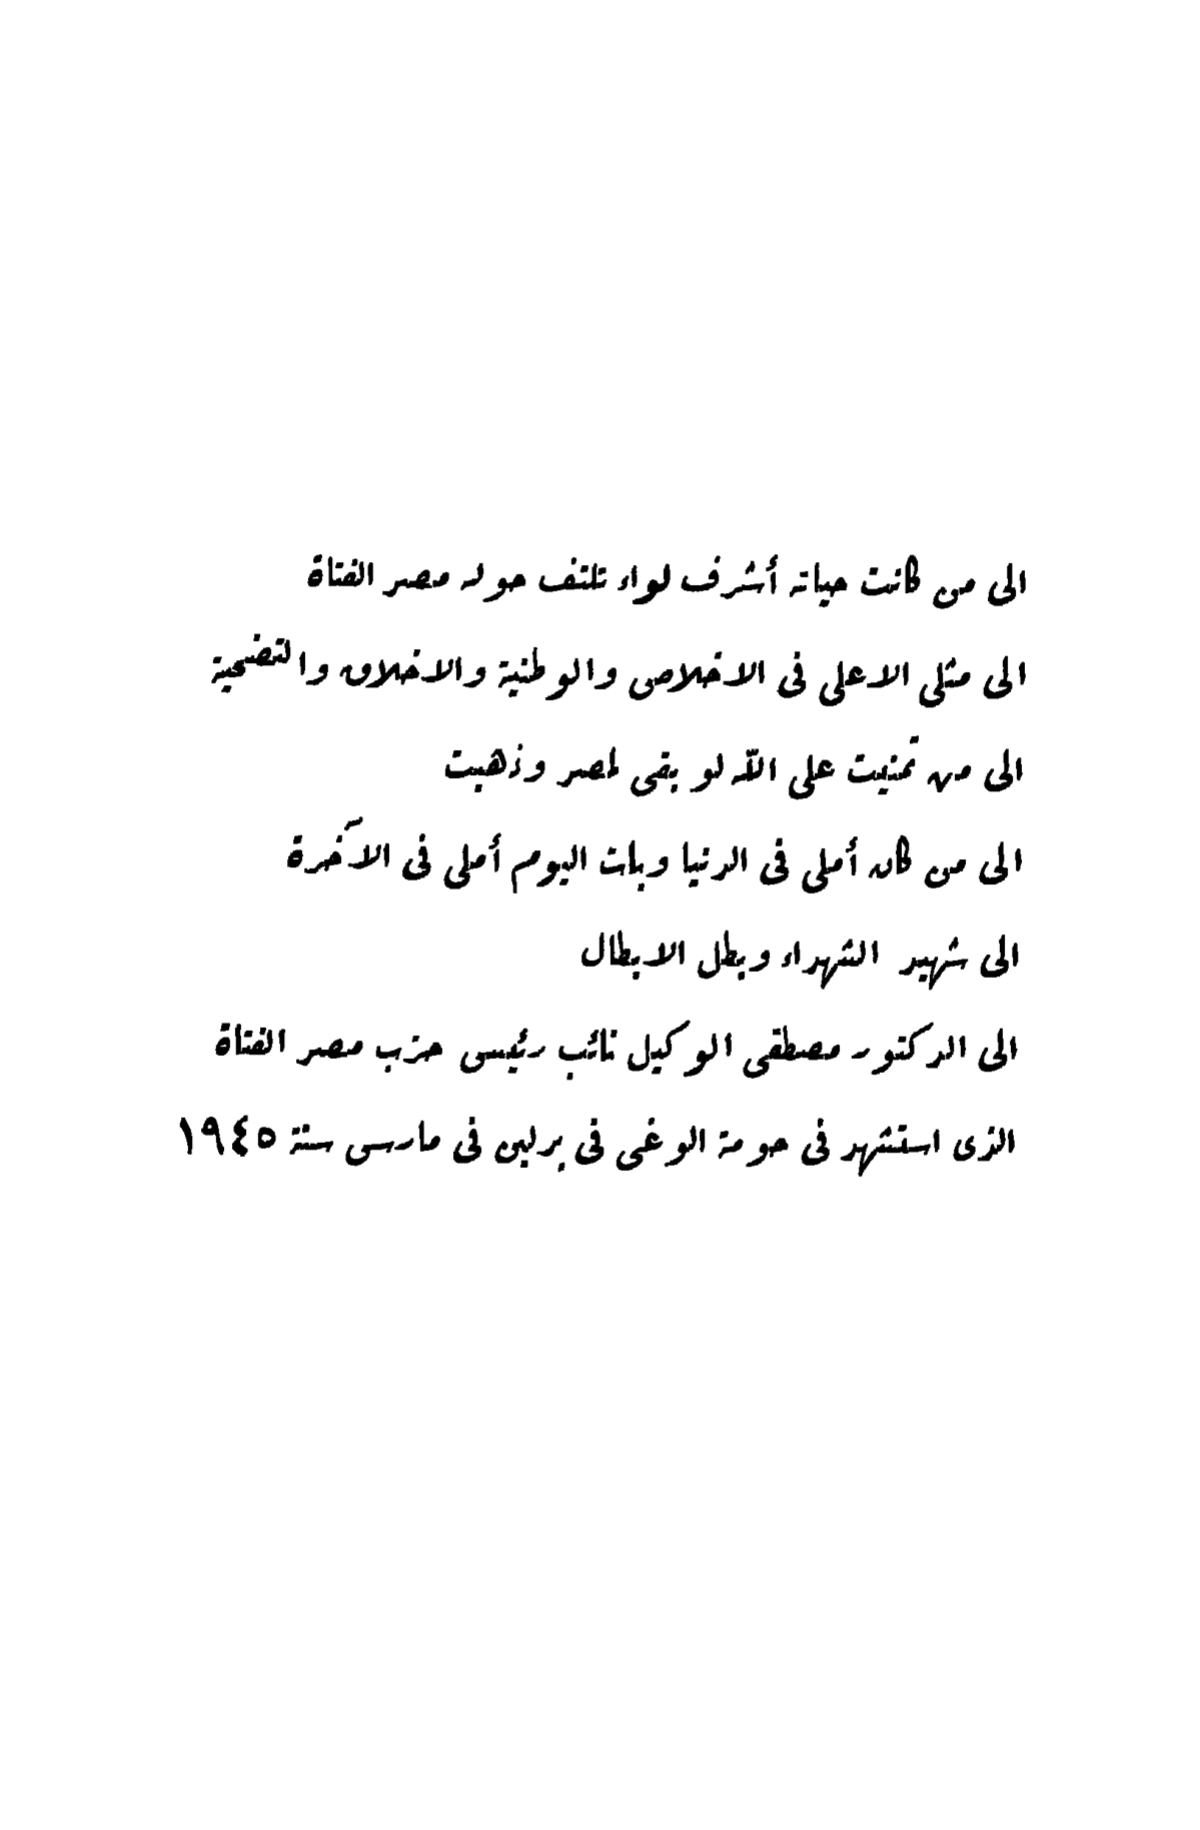 الى من كانت حياته أشرف لواء تلتف حوله مصر الفتاة
الى مثلى الاعلى فى الاخلاص والوطنية والاخلاق والتضحية
الى من تمنيت على الله لو بقى لمصر وذهبت
الى من كان أملى فى الدنيا وبات اليوم أملى فى الآخرة
الى شهيد الشهداء وبطل الابطال
الى الدكتور مصطفى الوكيل نائب رئيس حزب مصر الفتاة
الذى استشهد فى حومة الوغى فى برلين فى مارس سنة ١٩٤٥